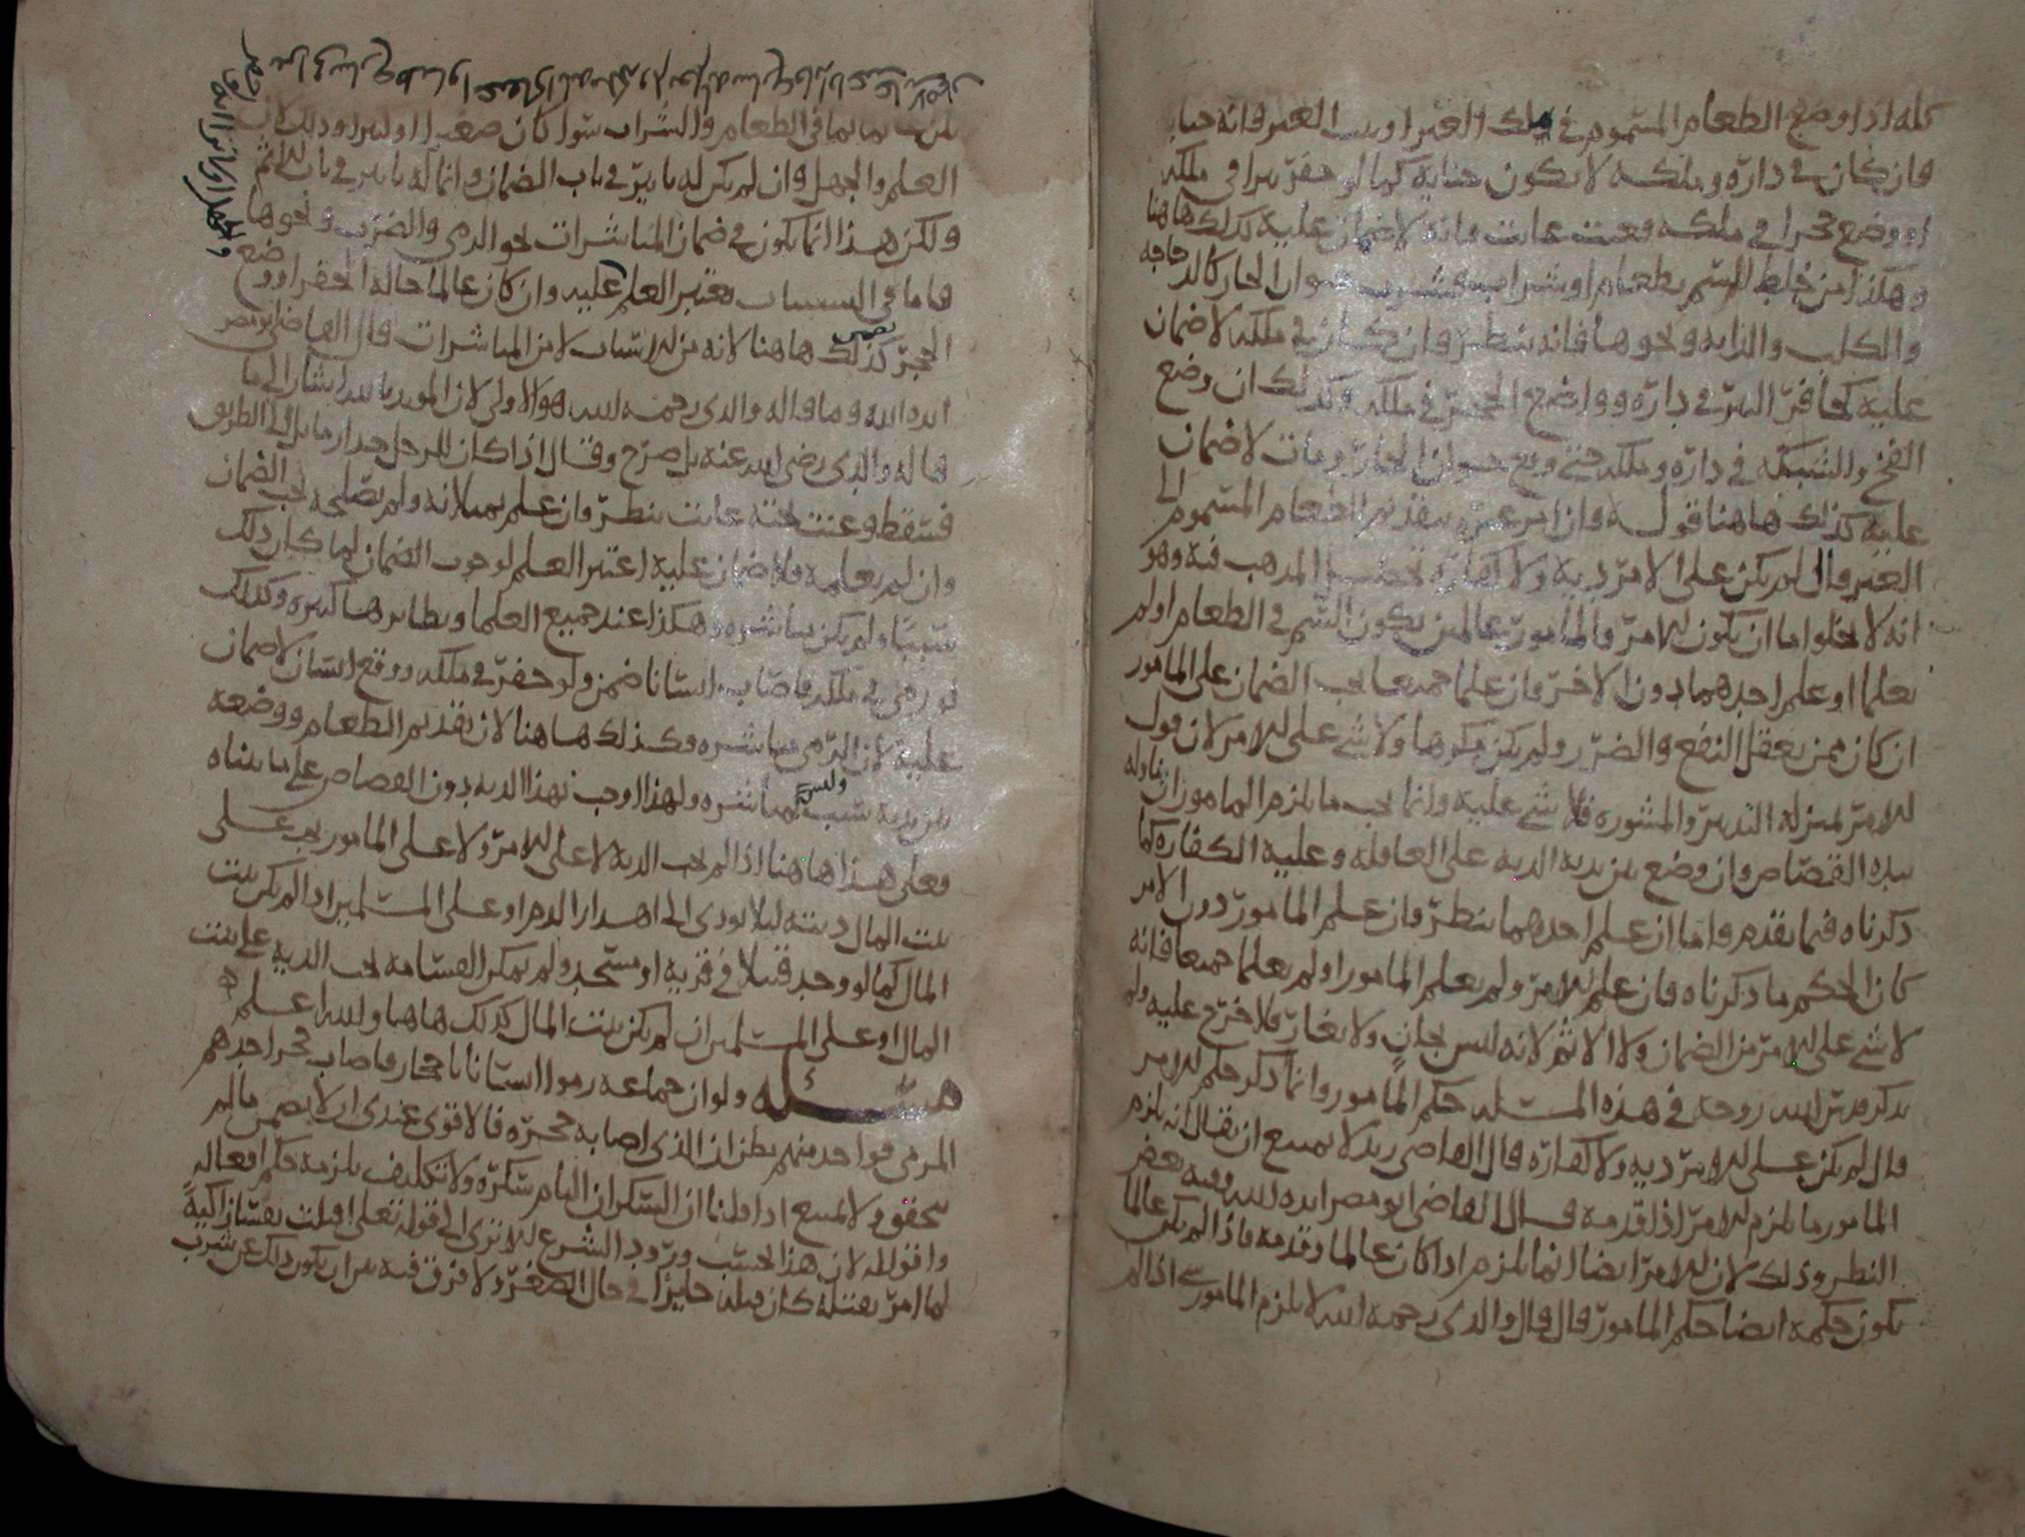 كله اذا وضع الطعام المسموم في ملك الغير او بيت الغير فانه جناية
فان كان في داره وملكه لا يكون جناية كما لو حفر بيرا في ملكه
او وضع حجرا في ملكه فعنت عانت فانه لا ضمان عليه كذلك هاهنا
وهكذا من خلط السم بطعام او شراب حيوان الجار كالدجاجه
والكلب والدابه ونحوها فانه ينظر فان كان في ملكه لا ضمان
عليه كحافر البير في داره وواضع الحجر في ملكه وكذلك ان وضع
الفخ والشبكه في داره وملكه حتى وقع حيوان الجار ومات لا ضمان
عليه كذلك هاهنا قوله وان امر غيره بتقديم الطعام المسموم الى
الغير قال لم يكن على الامر دية ولا كفارة تحصيل المذهب فيه وهو
انه لا يخلوا اما ان يكون الامر والمامور عالمين بكون السم في الطعام او لم
يعلما او علم احدهما دون الاخر وان علما جميعا يجب الضمان على المامور
ان كان ممن يعقل النفع والضرر ولم يكن مكرها ولا شي على الامر لان قول
الامر بمنزله التدبير والمشوره فلا شي عليه وانما يجب ما يلزم المامور ان ناوله
بيده القصاص وان وضع بين يديه الديه على العاقله وعليه الكفاره كما
ذكرناه فيما تقدم واما ان علم احدهما ينظر وان علم المامور دون الامر
كان الحكم ما ذكرناه فان علم الامر ولم يعلم المامور او لم يعلما جميعا فانه
لا شي على الامر من الضمان ولا الاثم لانه ليس بجان ولا بغار فلا حرج عليه ولم
يذكر قدس الله روحه في هذه المسئله حكم المامور وانما ذكر حكم الامر
قال لم يكن على الامر ديه ولا كفاره قال القاضي زيد لا يمتنع ان يقال انه يلزم
المامور ما يلزم الامر اذا قدمه قال القاضي ابو مضر ايده الله وفيه بعض
النظر وذلك لان الامر ايضا انما لزم اذا كان عالما وقدمه فاذا لم يكن عالما
يكون حكمه ايضا حكم المامور قال قال والدي رحمه الله لا يلزم المامور شي اذا لم
يكن عالما بما في الطعام والشراب سوا كان صغيرا او كبيرا وذلك لان
العلم والجهل وان لم يكن له تاثير في باب الضمان وانما له تاثير في باب الاثم
ولكن هذا انما يكون في ضمان المباشرات نحو الرمي والضرب ونحوها
فاما في السببات يعتبر العلم عليه وان كان عالما حاله الحفر او وضع
الحجر يضمن كذلك هاهنا لانه من الاسباب لا من المباشرات قال القاضي ابو مضر
ايده الله وما قاله والدي رحمه الله هو الاولى لان المويد بالله اشار الى ما
قاله والدي رضي الله عنه بل صرح وقال اذا كان للرجل جدار مايل الى الطريق
فسقط وعنت تحته عانت ينظر فان علم بميلانه ولم يصلحه يجب الضمان
وان لم يعلمه فلا ضمان عليه اعتبر العلم لوجوب الضمان لما كان ذلك
سببا ولم يكن مباشره وهكذا عند جميع العلما ونظايرها كثيره وكذلك
لو رمى في ملكه فاصاب انسانا ضمن ولو حفر في ملكه ووقع انسان لا ضمان
عليه لان الرمي مباشره وكذلك هاهنا لان تقديم الطعام ووضعه
بين يديه سبب وليس بمباشره ولهذا اوجب بهذا الديه دون القصاص على ما بيناه
فعلى هذا هاهنا اذا لم تجب الديه لا على الامر ولا على المامور يجب على
بيت المال ديته ليلا يودى الى اهدار الدم او على المسلمين اذا لم يكن بيت
المال كما لو وجد قتيلا في قرية او مسجد ولم يمكن القسامة تجب الدية على بيت
المال او على المسلمين ان لم يكن بيت المال كذلك هاهنا والله اعلم
مسئله ولو ان جماعه رموا انسانا باحجار فاصاب حجر احدهم
المرمى فواحد منهم يظن ان الذي اصابه حجره فالاقوى عندي انه لا يضمن ما لم
يتحقق ولا يمتنع اذا قلنا ان السكران التام سكره ولا تكليف يلزمه حكم افعاله
وافقو الله لان هذا بحسب ورود الشرع الا ترى الى قوله تعلى اقتلت نفسا زاكية
لما امر بقتله كان قتله جايزا في حال الصغر ولا فرق فيه بين ان يكون ذلك عن شرب